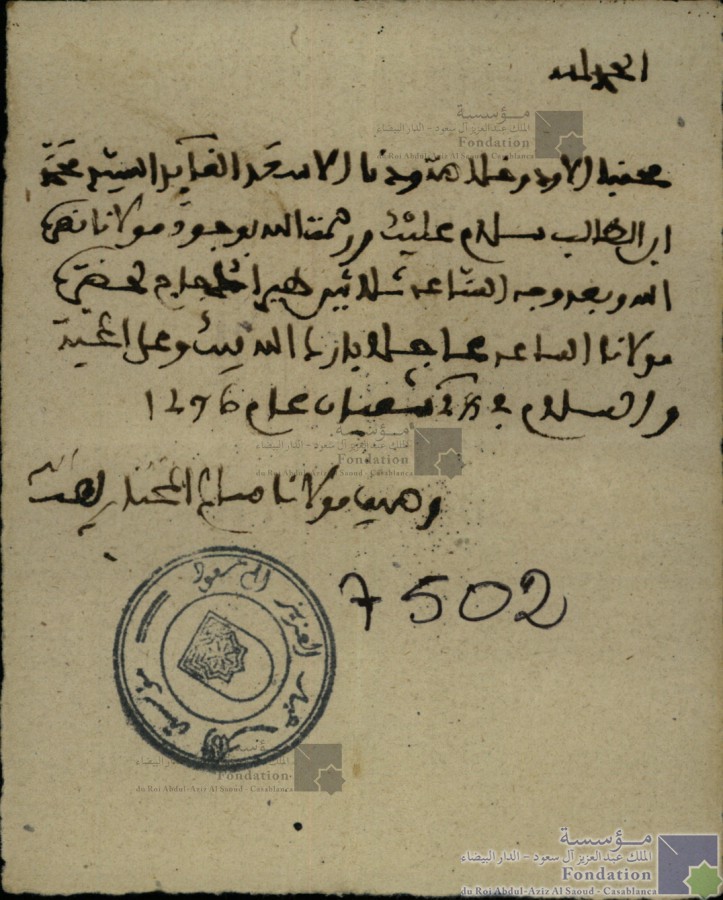 الحمد لله
محبنا الاود وعملا هذو دنا الاسعد القايد السيد محمد
ابن الطالب سلام عليك ورحمت الله بوجود مولانا نصره
الله وبعد وجه الساعه ثلاثين طير الحمام لحضرة
مولانا الساعه عاجلا بارك الله فيك وعلى المحبة
والسلام في شعبان عام 1276
وصيف مولانا
7502
مؤسسة الملك عبد العزيز آل سعود
مؤسسة
الملك عبدالعزيز آل سعود - الدار البيضاء
Fondation
du Roi Abdul-Aziz Al Saoud - Casablanca
مؤسسة
الملك عبدالعزيز آل سعود - الدار البيضاء
Fondation
du Roi Abdul-Aziz Al Saoud - Casablanca
مؤسسة
الملك عبدالعزيز آل سعود - الدار البيضاء
Fondation
du Roi Abdul-Aziz Al Saoud - Casablanca
مؤسسة
الملك عبدالعزيز آل سعود - الدار البيضاء
Fondation
du Roi Abdul-Aziz Al Saoud - Casablanca